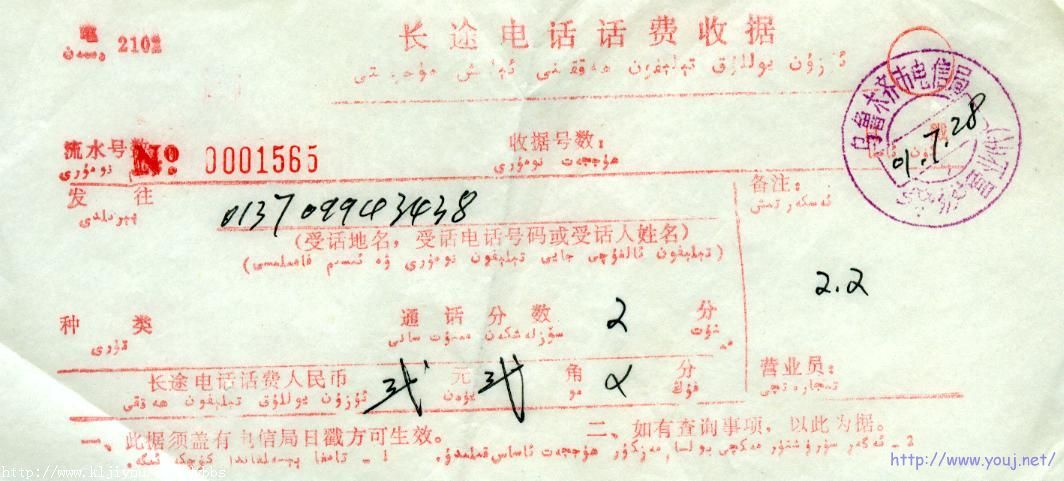 电 2102
长途电话话费收据
ئۇزۇن يوللۇق تېلېفون ھەققىنى تاپشۇرۇش ھۆججىتى
乌鲁木齐市电信局
01.7.28
流水号数: № 0001565
نومۇرى
收据号数:
ھۆججەت نومۇرى
发往 013709943438
备注:
ئەسكەرتىش
(受话地名,受话电话号码或受话人姓名)
2.2
种类
تۈرى
通话分数 2 分
سۆزلەشكەن مىنۇت سانى
长途电话话费人民币 弍 元 弍 角 分
ئۇزۇن يوللۇق تېلېفون ھەققى يۈەن مو فۇڭ
营业员:
一、此据须盖有电信局日戳方可生效。
二、如有查询事项,以此为据。
http://www.youj.net/